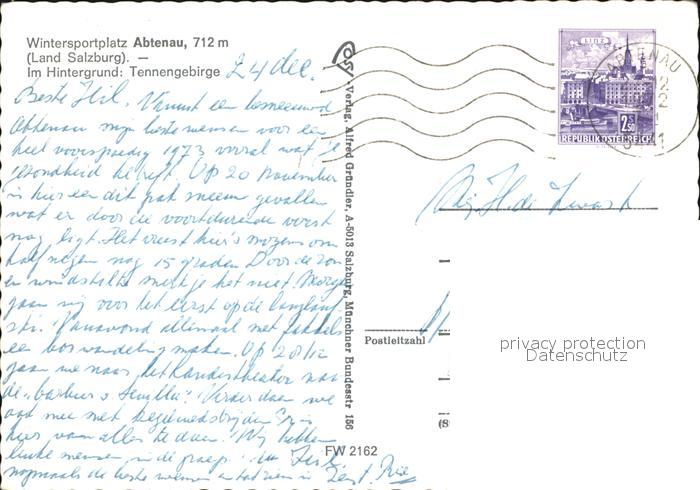 Wintersportplatz Abtenau, 712 m
(Land Salzburg). —
Im Hintergrund: Tennengebirge
24 dec.
Beste Hil. Vanuit een besneeuwd
Abtenau mijn beste wensen voor een
heel voorspoedig 1973 vooral wat je
gezondheid betreft. Op 20 november
is hier een dik pak sneeuw gevallen
wat er door de voortdurende vorst
nog ligt. Het vriest hier 's morgens om
half negen nog 15 graden Door de zon
en windstilte merk je het niet Morgen
gaan wij voor het eerst op de langlauf
ski. Vanavond allemaal met fakkels
een boswandeling maken. Op 28/12
gaan we naar het theater naar
de "barbier v Sevilla". Verder doen we
ook mee met
hier van alles te doen. Wij hebben
leuke mensen in de groep.
nogmaals de beste wensen en tot ziens in
Verlag. Alfred Gründler, A-5013 Salzburg, Münchner Bundesstr 156
LINZ
2.50
REPUBLIK ÖSTERREICH
ABTENAU
Postleitzahl
privacy protection
Datenschutz
FW 2162